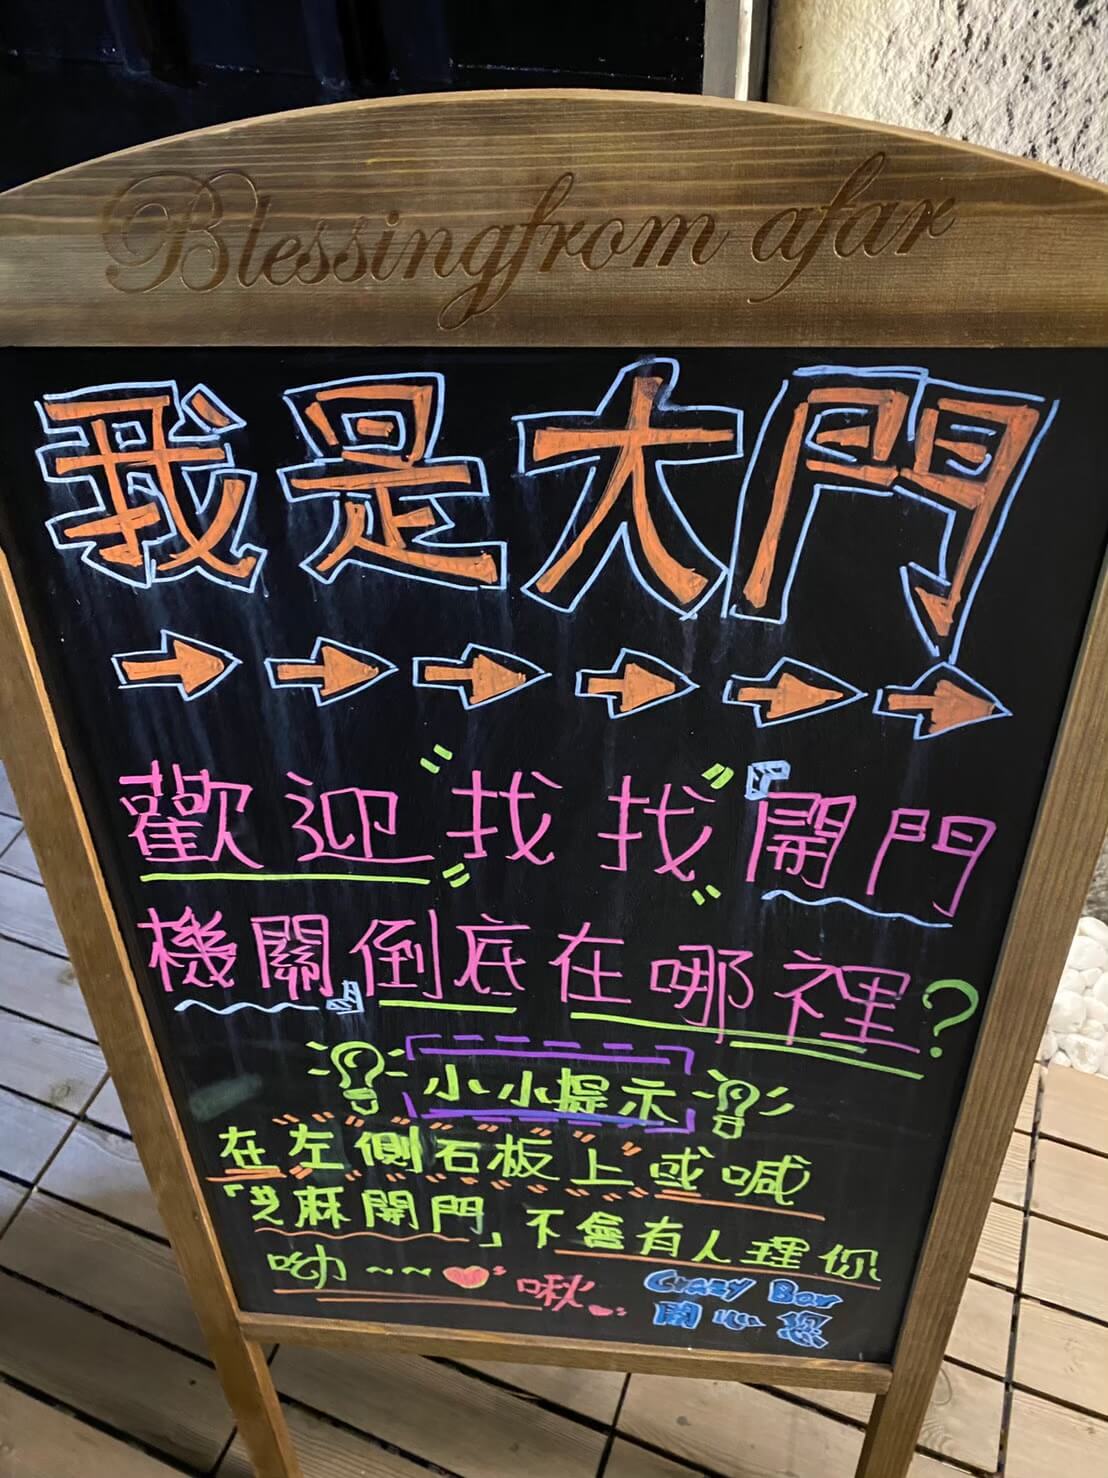 Blessing from afar
我是大門
→→→→→→
歡迎"找找"「開門
機關」倒底在哪裡?
小小提示
在左側石板上或喊
「芝麻開門」不會有人理你
呦~~啾
Crazy Bar
開心